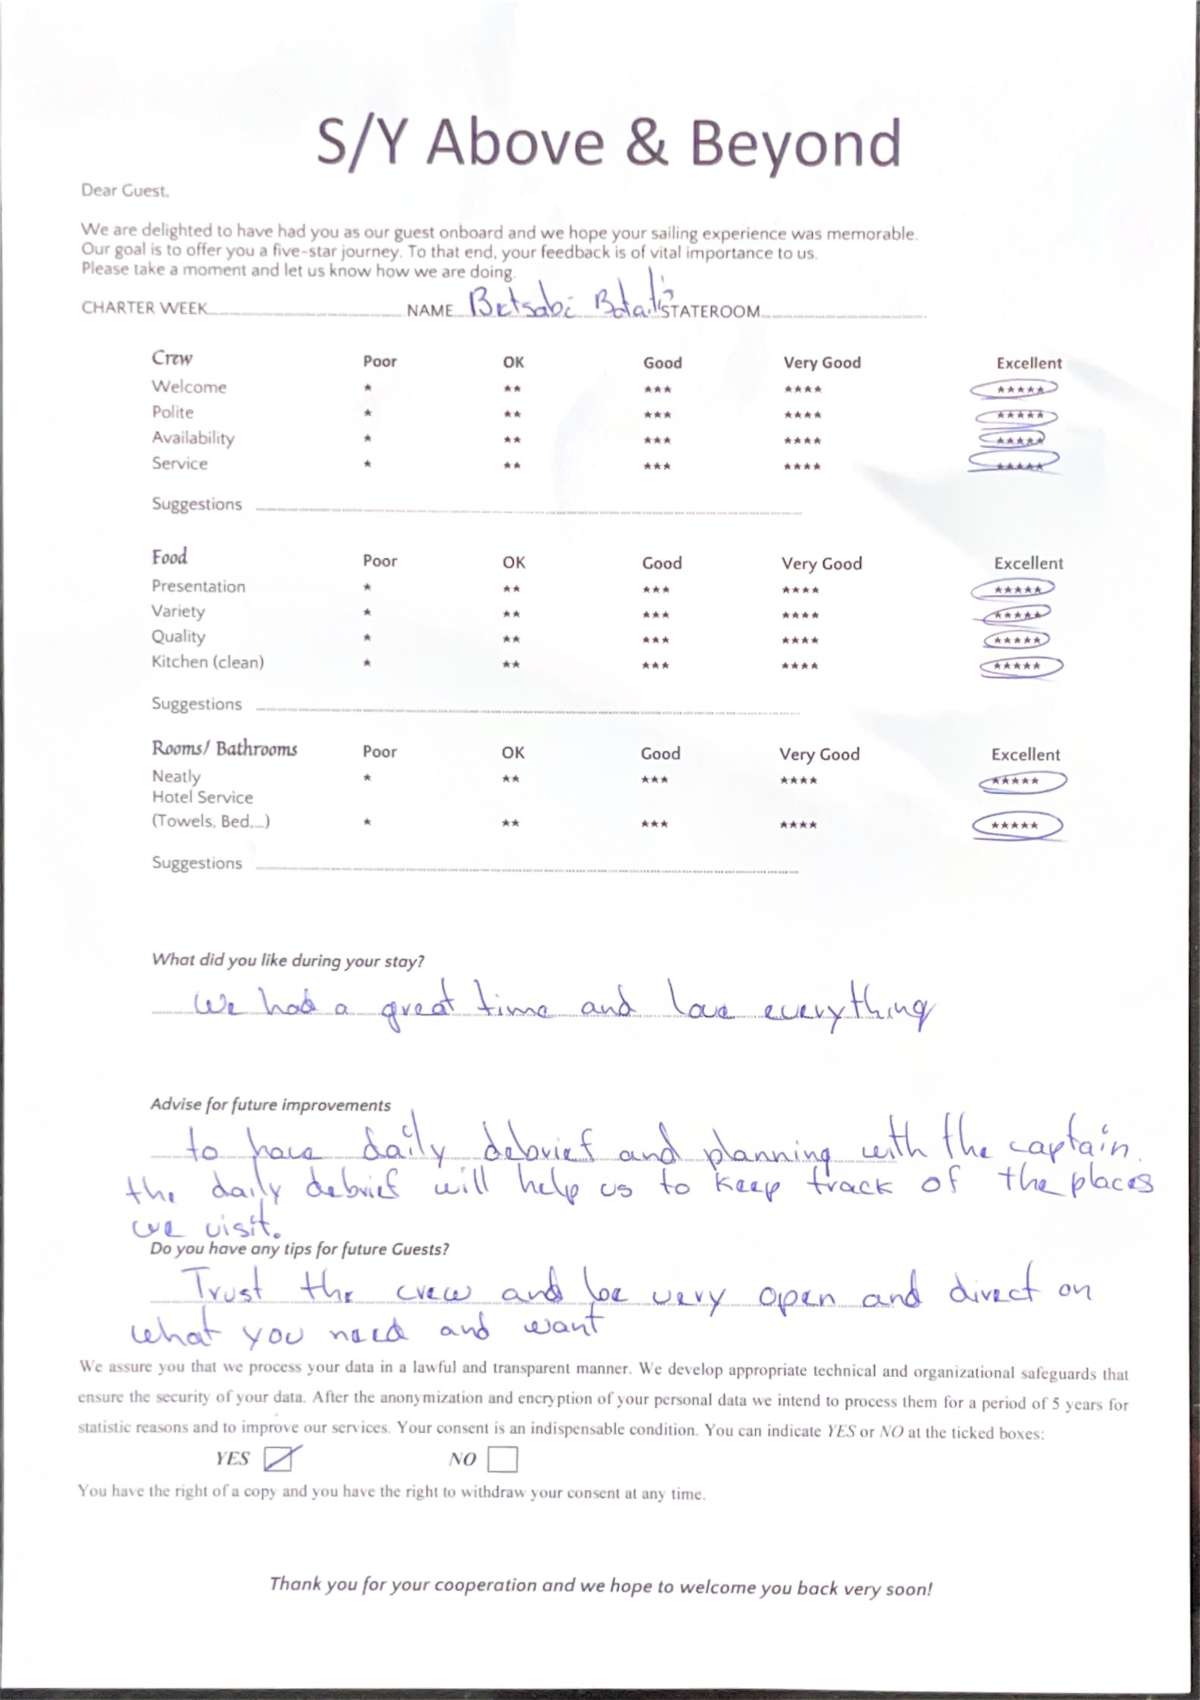 S/Y Above & Beyond
Dear Guest,
We are delighted to have had you as our guest onboard and we hope your sailing experience was memorable.
Our goal is to offer you a five-star journey. To that end, your feedback is of vital importance to us.
Please take a moment and let us know how we are doing.
CHARTER WEEK NAME Betsabi STATEROOM
Crew Poor OK Good Very Good Excellent
Welcome * ** *** **** *****
Polite * ** *** **** *****
Availability * ** *** **** *****
Service * ** *** **** *****
Suggestions
Food Poor OK Good Very Good Excellent
Presentation * ** *** **** *****
Variety * ** *** **** *****
Quality * ** *** **** *****
Kitchen (clean) * ** *** **** *****
Suggestions
Rooms/ Bathrooms Poor OK Good Very Good Excellent
Neatly * ** *** **** *****
Hotel Service
(Towels, Bed,...) * ** *** **** *****
Suggestions
What did you like during your stay?
We had a great time and love everything
Advise for future improvements
to have daily debrief and planning with the captain.
the daily debrief will help us to keep track of the places
we visit.
Do you have any tips for future Guests?
Trust the crew and be very open and direct on
what you need and want
We assure you that we process your data in a lawful and transparent manner. We develop appropriate technical and organizational safeguards that
ensure the security of your data. After the anonymization and encryption of your personal data we intend to process them for a period of 5 years for
statistic reasons and to improve our services. Your consent is an indispensable condition. You can indicate YES or NO at the ticked boxes:
YES NO
You have the right of a copy and you have the right to withdraw your consent at any time.
Thank you for your cooperation and we hope to welcome you back very soon!